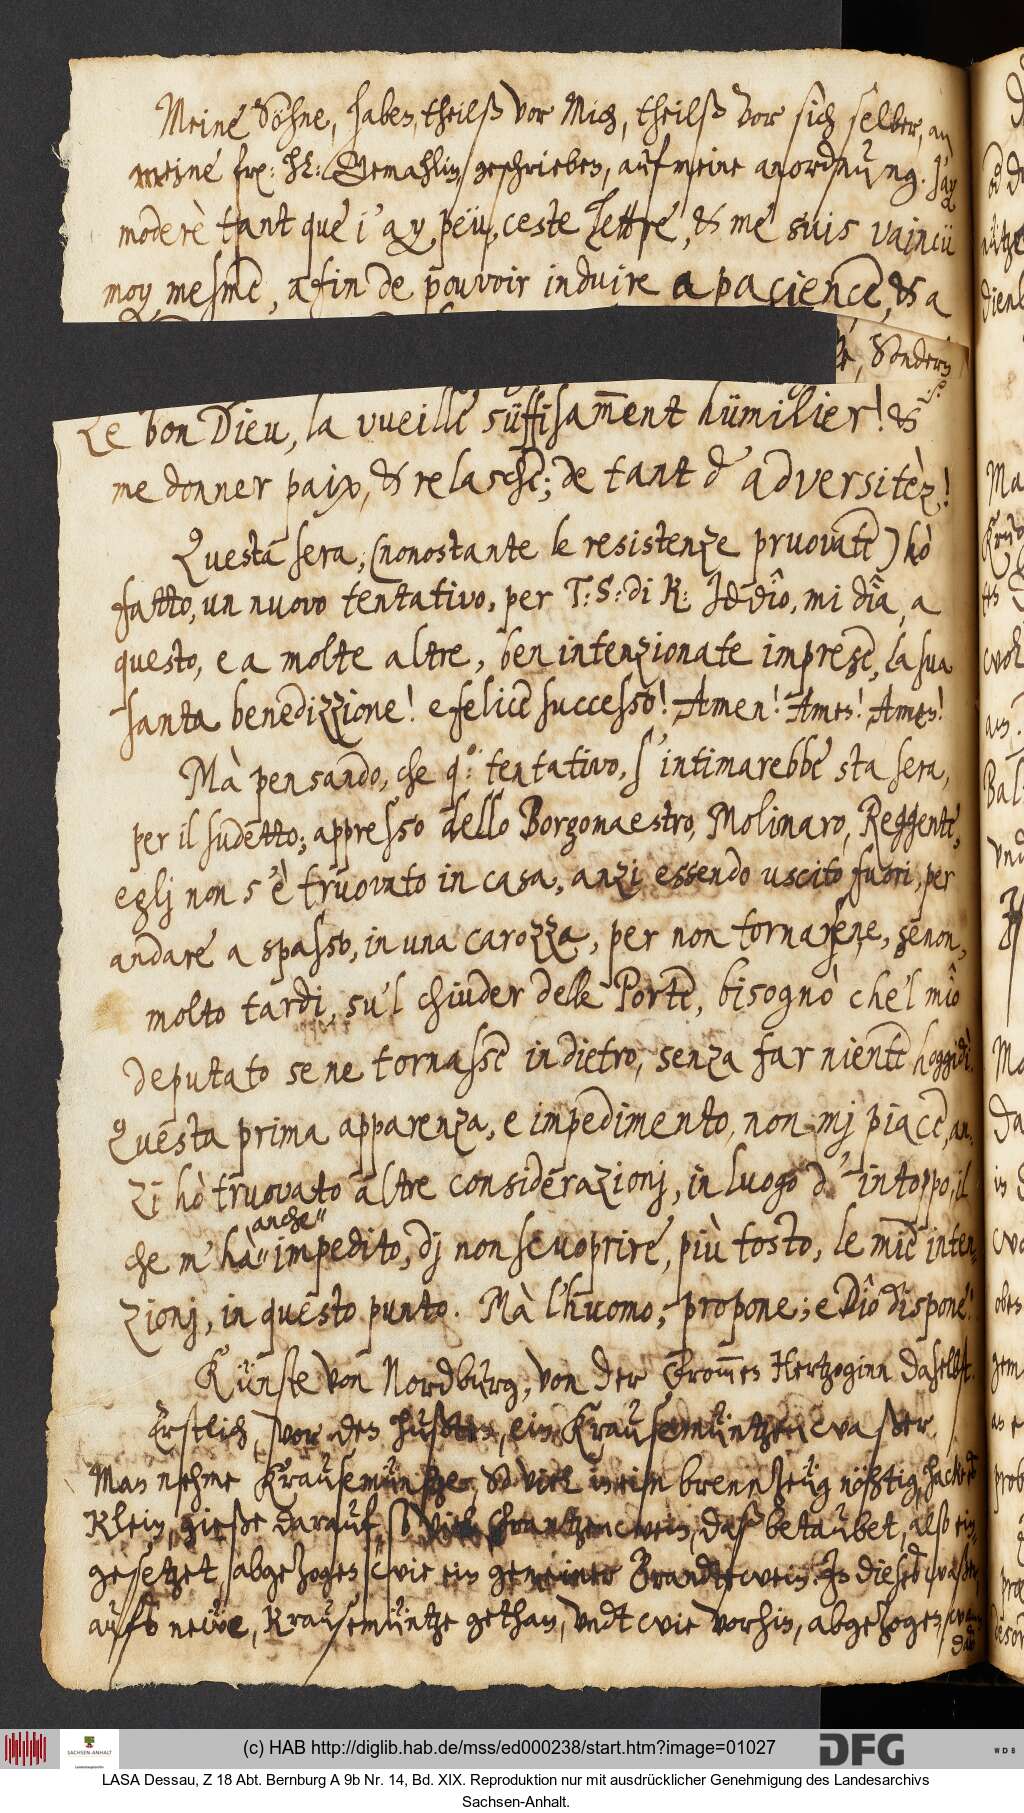 Meine Söhne, haben, theilß vor Mich, theilß vor sich selber, an
meine fr: h: Gemahlin, geschrieben, auf meine anordnung. J'ay
moderè tant que i'ay pëu, ceste lettre, & me suis vaincü
moy mesme, afin de pouvoir induire a pacience, & a
Sondern
Le bon Dieu, la vueille süffisam̅ent hümilier! &
me donner paix, & relasche; de tant d'adversitèz!
Questa sera, (nonostante le resistenze pruovate) hò
fatto, un nuovo tentativo, per T: S: di K: Iddîo, mi dîa, a
questo, e a molte altre, ben intenzionate imprese, la sua
santa benedizzione! e felice successo! Amen! Amen! Amen!
Mà pensando, che q.o: tentativo, s'intimarebbe sta sera,
per il sudetto; appresso dello Borgomaestro, Molinaro, Reggente,
eglj non s'è truovato in casa, anzi essendo uscito fuori, per
andare a spasso, in una carozza, per non tornarsene, senon,
molto tardi, su'l chiuder delle Porte, bisognò che'l mîo
deputato se ne tornasse in dietro, senza far niente hoggidì.
Questa prima apparenza, e impedimento, non mj piace, an-
zi hò truovato altre considerazionj, in luogo d'intoppo, il
anche
che m'hà impedito, dj non scuoprire, più tosto, le mie inten-
zionj, in questo punto. Mà l'huomo, propone; e Dîo dispone!
Künste von Nordburg, von der From̅en Hertzoginn daselbst.
Erstlich, vor den husten, ein Krausemüntzen waßer.
Man nehme Krausemüntze, so viel in ein brennzeug nöhtig, hacke
Klein, gieße darauf, so viel Frantzenwein, daß betaubet, also ein-
gesetzet, abgezogen, wie ein gemeiner Brandtewein. In dieses waßer,
aufs neüe, Krausemüntze gethan, vndt wie vorhin, abgezogen,
das
(c) HAB http://diglib.hab.de/mss/ed000238/start.htm?image=01027
SACHSEN-ANHALT
DFG
WDB
LASA Dessau, Z 18 Abt. Bernburg A 9b Nr. 14, Bd. XIX. Reproduktion nur mit ausdrücklicher Genehmigung des Landesarchivs
Sachsen-Anhalt.